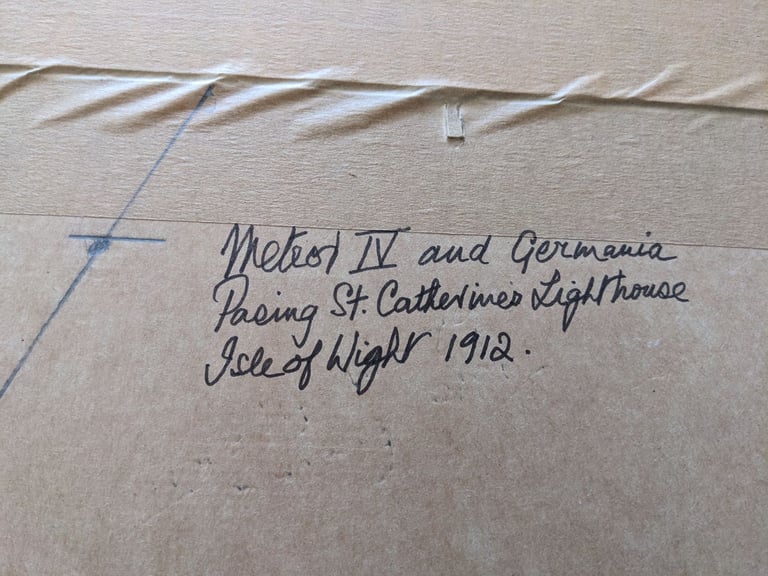 Meteor IV and Germania
Pacing St. Catherine's Lighthouse
Isle of Wight 1912.